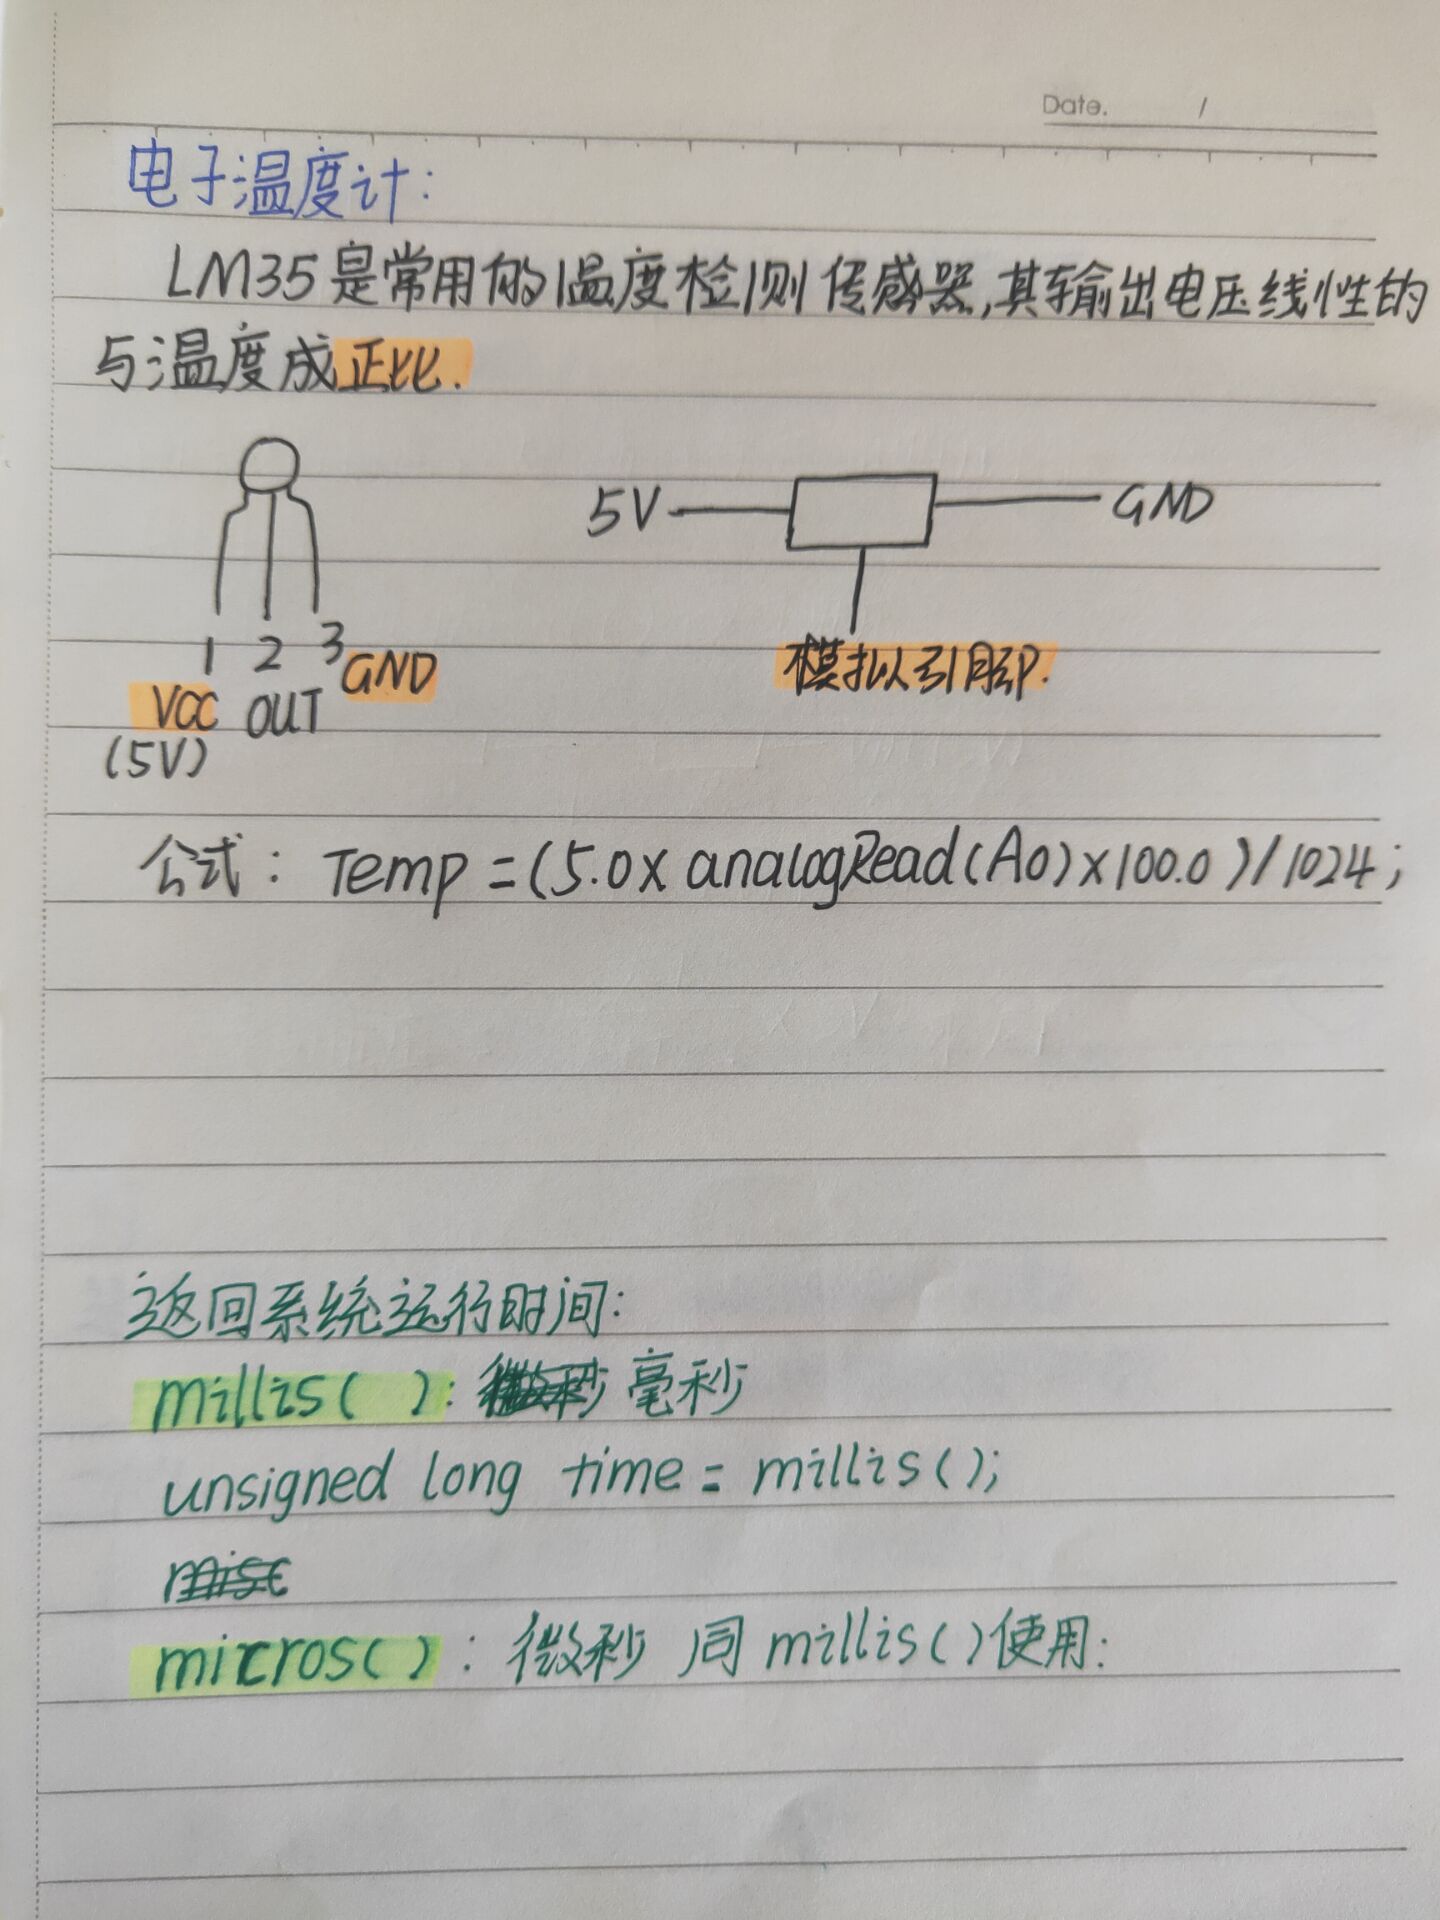 Date. /
电子温度计:
LM35是常用的温度检测传感器,其输出电压线性的
与温度成正比.
5V GND
1 2 3 GND
VCC OUT
(5V)
模拟引脚.
公式: Temp=(5.0x analogRead(A0)x100.0)/1024;
返回系统运行时间:
millis( ): 毫秒
unsigned long time = millis();
micros(): 微秒 同millis()使用: